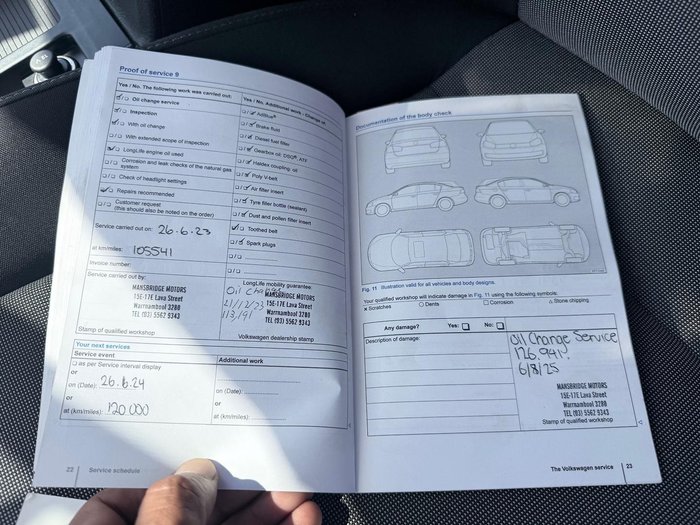 Proof of service 9
Yes / No. The following work was carried out:
Oil change service
Inspection
With oil change
With extended scope of inspection
LongLife engine oil used
Corrosion and leak checks of the natural gas
system
Check of headlight settings
Repairs recommended
Customer request
(this should also be noted on the order)
Service carried out on: 26.6.23
at km/miles: 105541
Invoice number:
Service carried out by:
MANSBRIDGE MOTORS
15E-17E Lava Street
Warrnambool 3280
TEL (03) 5562 9343
Stamp of qualified workshop
Yes / No. Additional work - Change of:
AdBlue®
Brake fluid
Diesel fuel filter
Gearbox oil: DSG®, ATF
Haldex coupling: oil
Poly V-belt
Air filter insert
Tyre filler bottle (sealant)
Dust and pollen filter insert
Toothed belt
Spark plugs
LongLife mobility guarantee:
Oil change
21/12/23
MANSBRIDGE MOTORS
15E-17E Lava Street
Warrnambool 3280
TEL (03) 5562 9343
Volkswagen dealership stamp
Your next services
Service event
as per Service interval display
or
on (Date): 26.6.24
or
at (km/miles): 120 000
Additional work
on (Date):
or
at (km/miles):
22 Service schedule
Documentation of the body check
Fig. 11 Illustration valid for all vehicles and body designs.
Your qualified workshop will indicate damage in Fig. 11 using the following symbols:
x Scratches ○ Dents □ Corrosion △ Stone chipping
Any damage? Yes: No:
Description of damage:
Oil Change Service
126 941
6/8/25
MANSBRIDGE MOTORS
15E-17E Lava Street
Warrnambool 3280
TEL (03) 5562 9343
Stamp of qualified workshop
The Volkswagen service 23